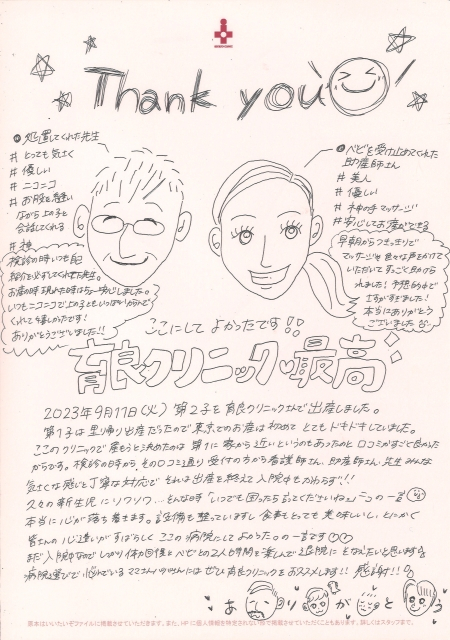 Thank you
処置してくれた先生
# とっても気さく
# 優しい
# ニコニコ
# お股を縫い
ながら上の子と
会話してくれる
# 神
検診の時いつも自己
紹介を必ずしてくれた先生。
お産の時現れた時はちょー安心しました。
いつもニコニコで上の子ともいっぱいからんで
くれて嬉しかったです!
ありがとうございました!!
ベビを受け止めてくれた
助産師さん
# 美人
# 優しい
# 神の手マッサージ
# 安心してお産ができる
早朝からつきっきりで
マッサージや色々な声をかけて
いただいてすっごく助けら
れました!予想の外で
すがすきました!
本当にありがとう
ございました
ここにして よかったです!!
育良クリニック最高
2023年9月11日(火) 第2子を育良クリニックさんで出産しました。
第1子は里り帰り出産だったので東京でのお産は初めてとてもドキドキしていました。
ここのクリニックで産もうと決めたのは第1に家から近いというのもあったのと口コミがすごく良かった
からです。検診の時から、その口コミ通り受付の方から看護師さん、助産師さん、先生みんな
気さくな感じと丁寧な対応で それは出産を終えて入院中もかわらず!!
久々の新生児にソワソワ...そんな時「いつでも困ったら言ってくださいねぇ」この一言
本当に心が落ち着きます。設備も整っていますし食事もとっても美味しいし、とにかく
皆さんの心遣いがすばらしく この病院にしてよかった。の一言です
まだ入院中なので しっかり体の回復とベビとの2人の時間を楽しんで退院にそなえたいと思います
病院選びで悩んでいるママさんがいたら ぜひ育良クリニックをおススメします!! 感謝!!
ありがとう
原本はいいたいぞファイルに掲載させていただきます。また、HPに個人情報を特定されない形で掲載させていただくこともあります。詳しくはスタッフまで。